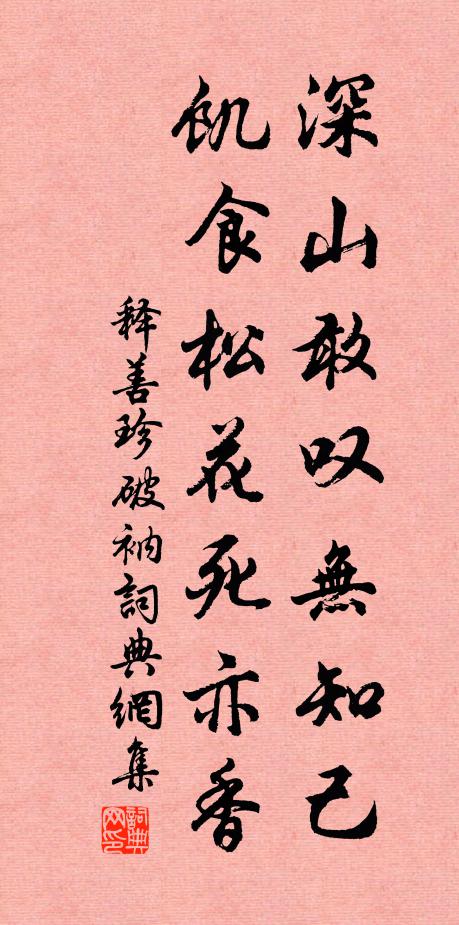 深山敢叹無知己
飢食松花死亦香
释善珍破衲詞典網集
詞典网印